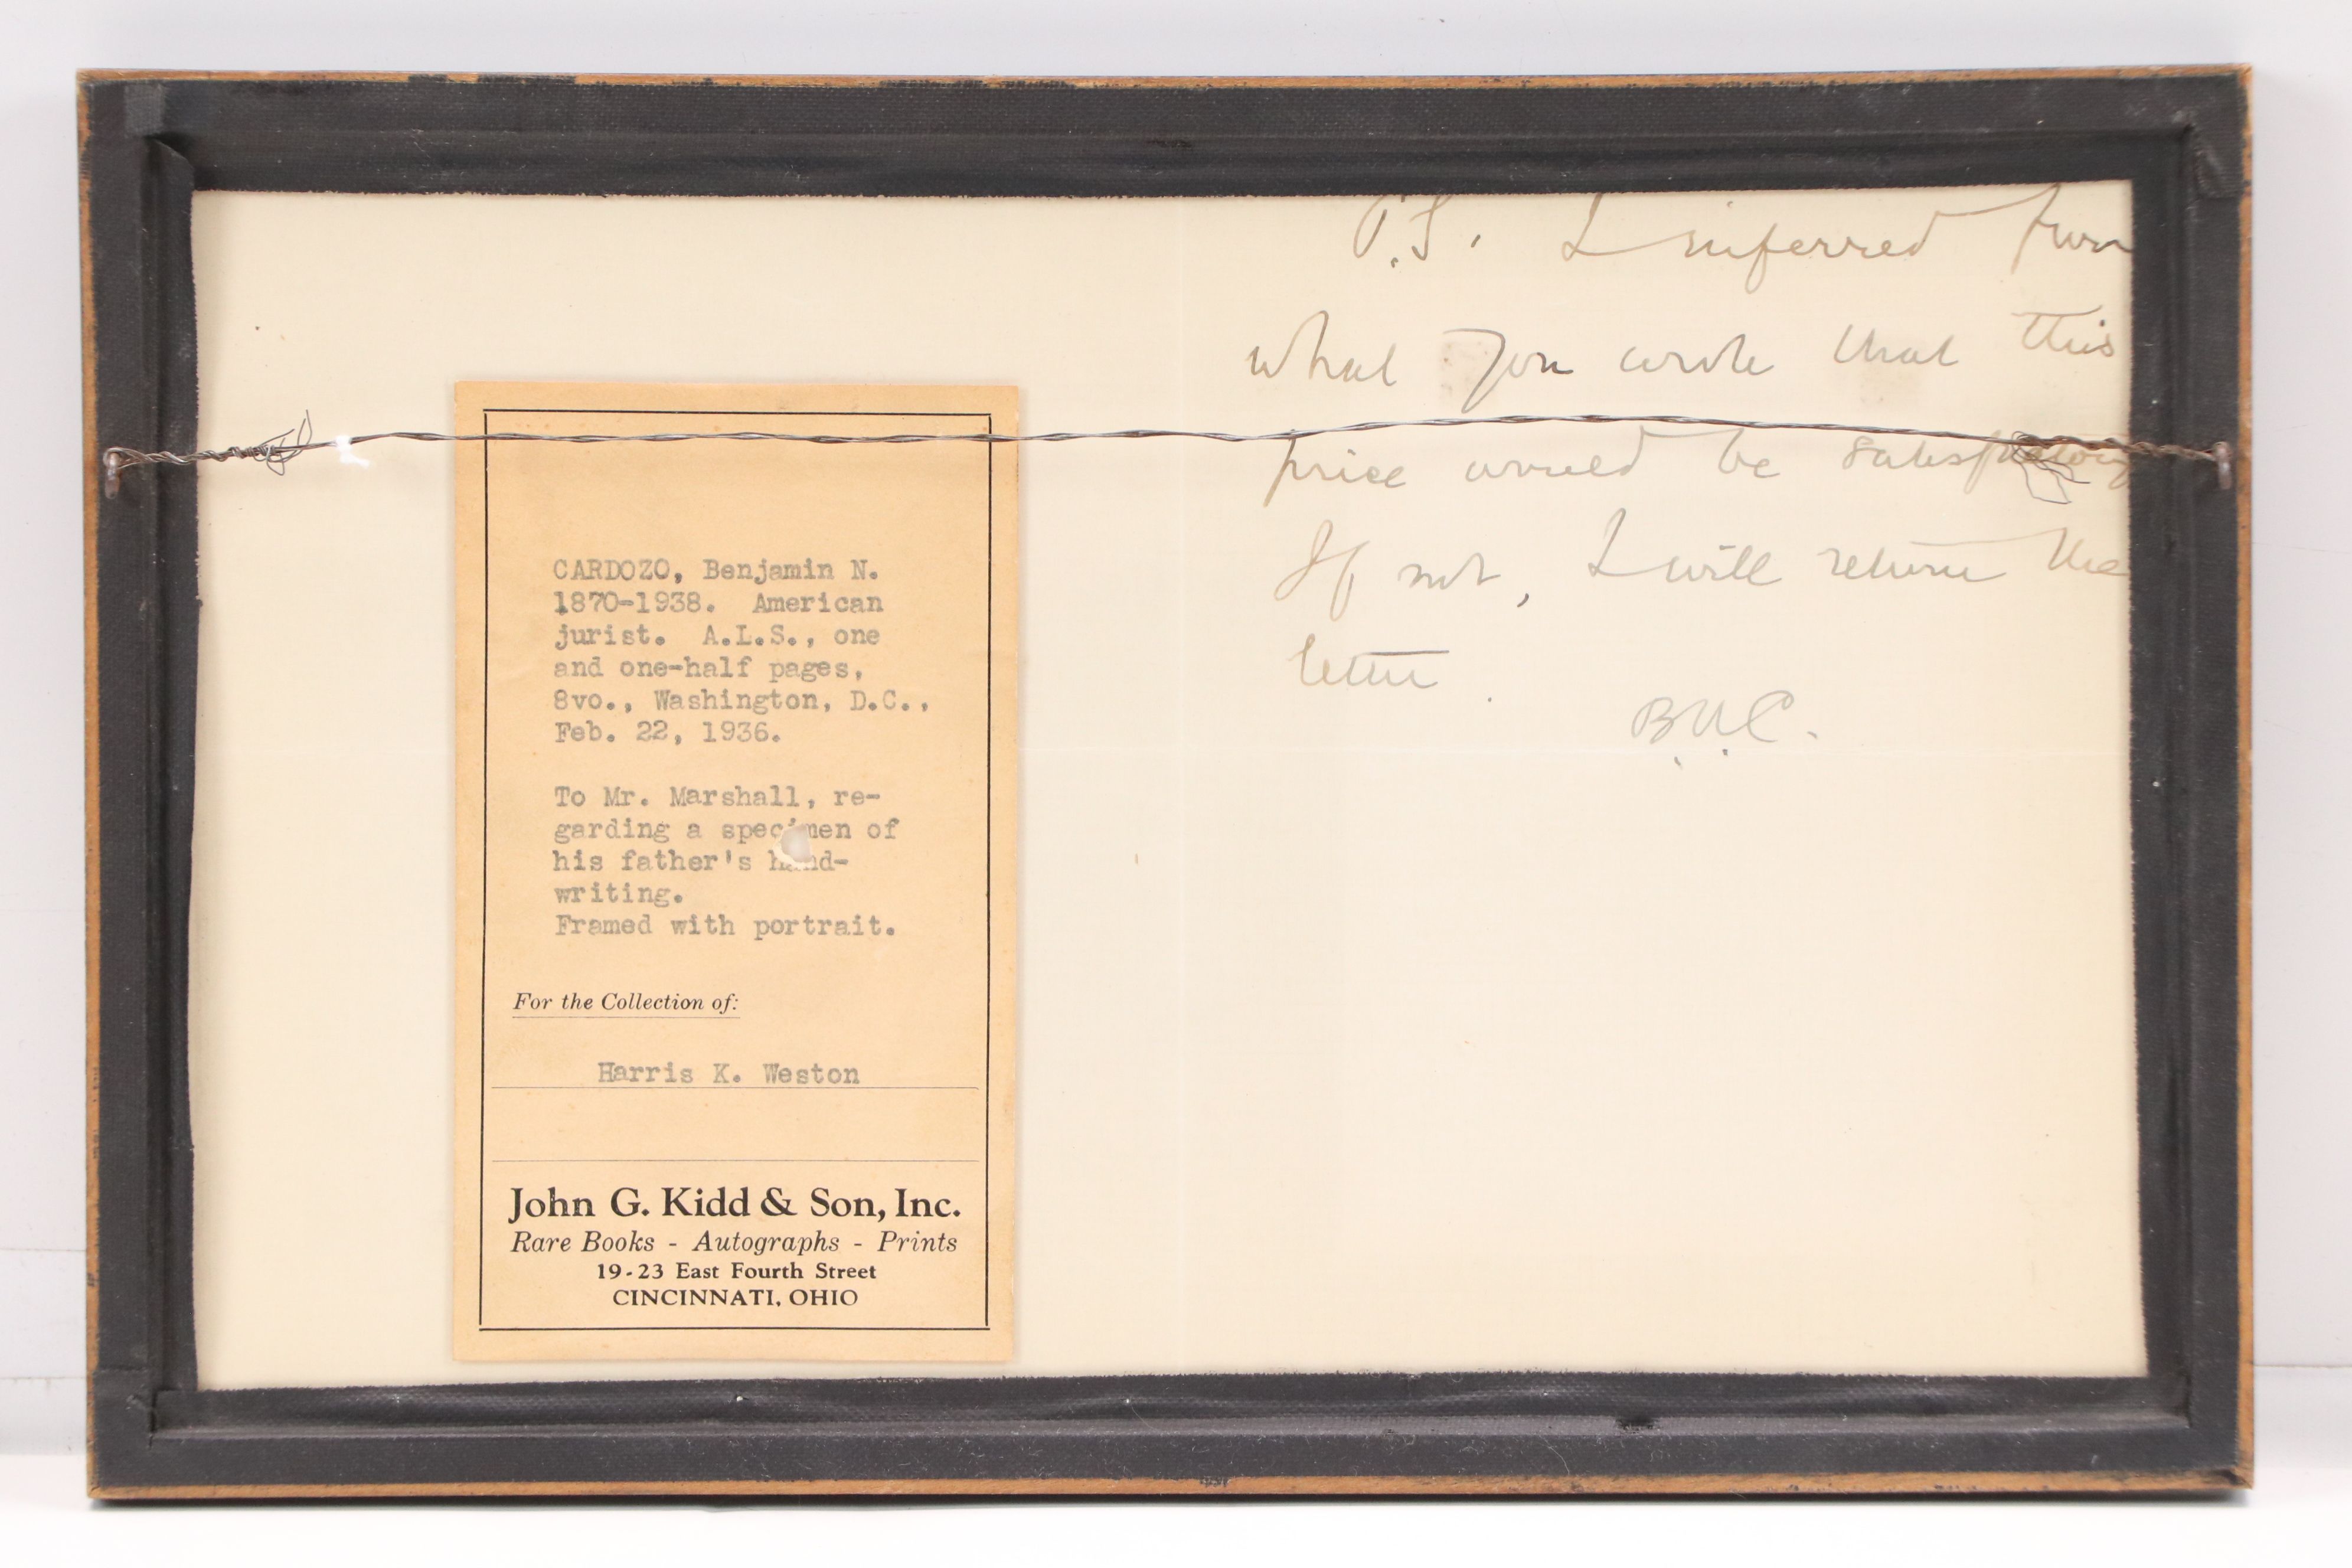 CARDOZO, Benjamin N.
1870-1938. American
jurist. A.L.S., one
and one-half pages,
8vo., Washington, D.C.,
Feb. 22, 1936.
To Mr. Marshall, re-
garding a specimen of
his father's hand-
writing.
Framed with portrait.
For the Collection of:
Harris K. Weston
John G. Kidd & Son, Inc.
Rare Books - Autographs - Prints
19-23 East Fourth Street
CINCINNATI, OHIO
P.S. I inferred from
what you wrote that this
price would be satisfactory
If not, I will return the
letter.
B.N.C.